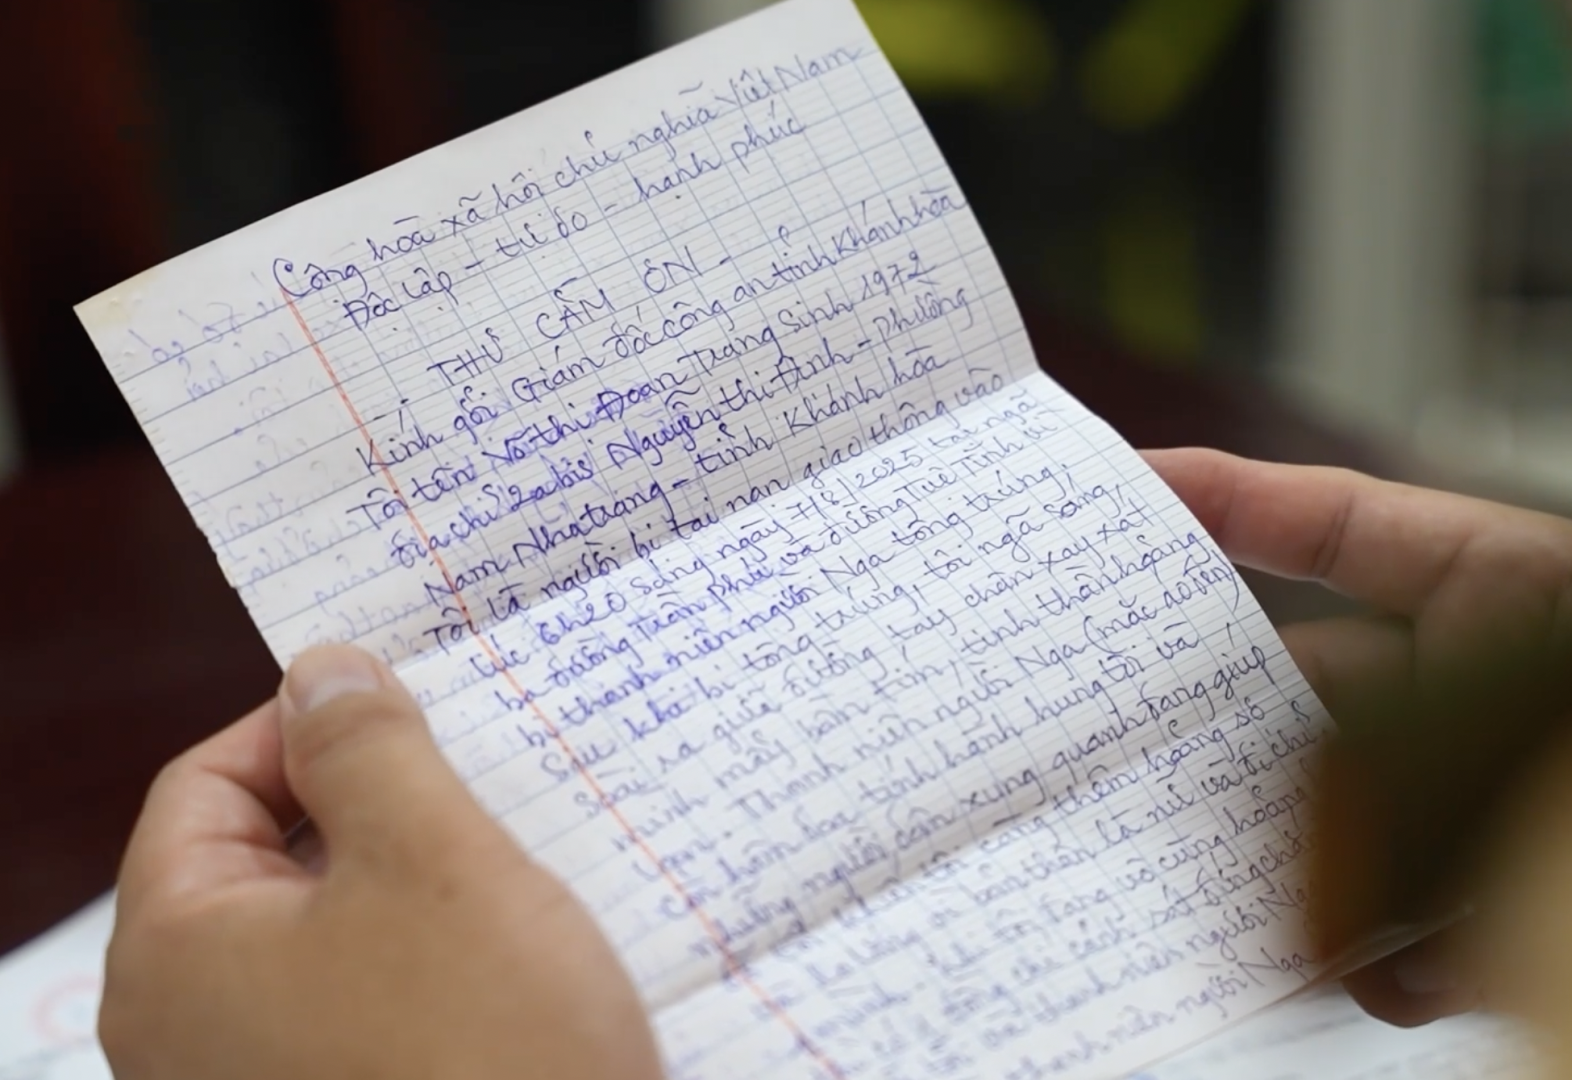 Cộng hòa xã hội chủ nghĩa Việt Nam
Độc lập - tự do - hạnh phúc
THƯ CẢM ƠN -
Kính gởi Giám đốc công an tỉnh Khánh hòa
Tôi tên Võ thị Đoan Trang Sinh 1972
địa chỉ 2a bis Nguyễn thị Định - Phường
Nam Nha trang - tỉnh Khánh hòa
Tôi là người bị tai nạn giao thông vào
lúc 6h20 sáng ngày 7/8/2025 tại ngã
ba đường Trần phú và đường Tuệ Tĩnh vì
bị thanh niên người Nga tông trúng,
Sau khi bị tông trúng, tôi ngã sóng,
soài ra giữa đường tay chân xay xát
mình mẩy bầm tím, tinh thần hoảng
loạn. Thanh niên người Nga (mặc áo đen)
còn hầm hba tính hành hung tôi và
những người dân xung quanh đang giúp
tôi càng thêm hoảng sợ
bản thân là nữ và tôi chỉ
tôi đang vô cùng hoảng
đồng chí cảnh sát
thanh niên người Nga
thanh niên người Nga